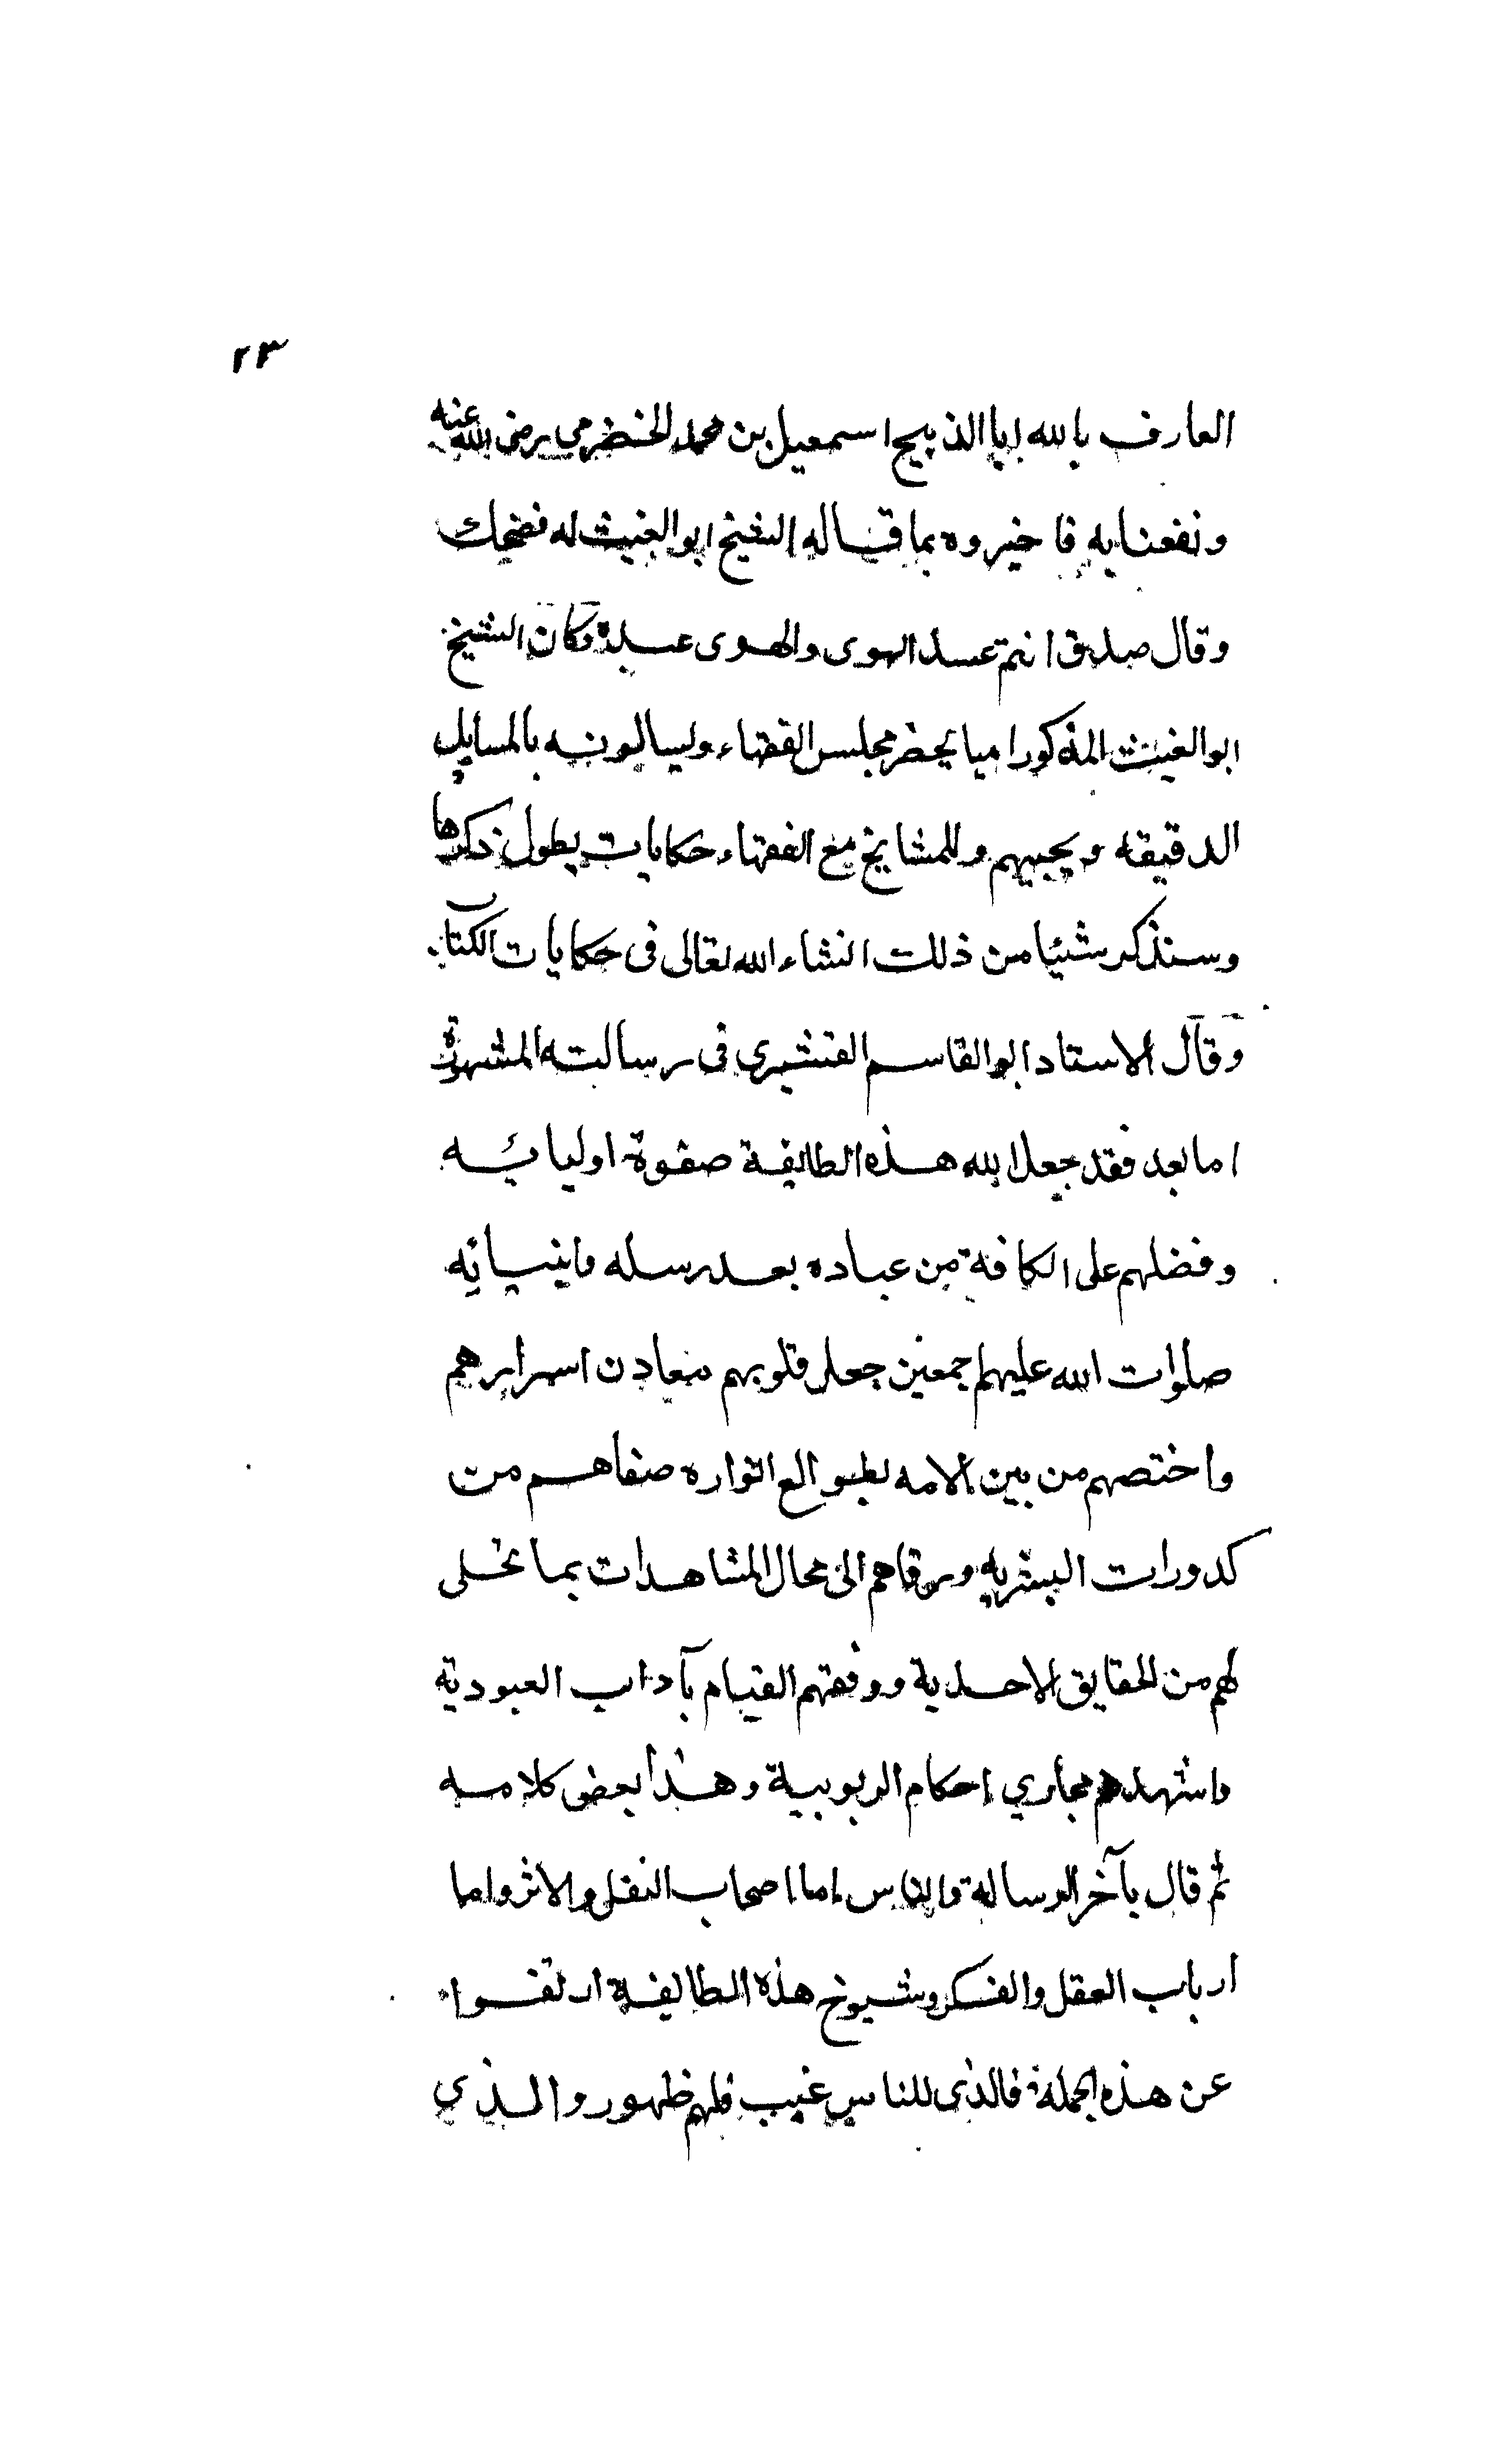 ٢٣
العارف بالله ابا الذبيح اسمعيل بن محمد الحضرمي رضى الله عنه
ونفعنا به فاخبروه بما قاله الشيخ ابو الغيث له فضحك
وقال صدق انتم عبيد الهوى والهوى عبده وكان الشيخ
ابو الغيث المذكور اميا يحضر مجلس الفقهاء ويسالونه بالمسايل
الدقيقه ويجيبهم وللمشايخ مع الفقهاء حكايات يطول ذكرها
وسنذكر شئيا من ذلك انشاء الله تعالى فى حكايات الكتاب
وقال الاستاد ابو القاسم القشيرى فى رسالته المشهورة
اما بعد فقد جعل الله هذه الطايفة صفوة اوليائه
وفضلهم على الكافة من عباده بعد رسله وانبيائه
صلوات الله عليهم اجمعين جعل قلوبهم معادن اسرارهم
واختصهم من بين الامه بطوالع انواره صفاهم من
كدورات البشريه ورقاهم الى محال المشاهدات بما تحلى
لهم من الحقايق الاحدية ووفقهم القيام بآداب العبودية
واشهدهم مجاري احكام الربوبية وهذا بعض كلامه
ثم قال بآخر الرسالة والناس اما اصحاب النقل والاثر واما
ارباب العقل والفكر وشيوخ هذه الطايفة ارتقوا
عن هذه الجملة فالذى للناس غيب فلهم ظهور والذي